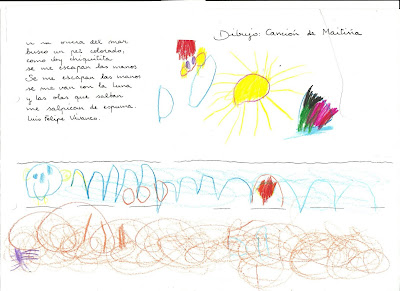 del mar
busco un pez colorado;
como soy chiquitita
se me escapan las manos
Se me escapan las manos
se me van con la luna
y las olas que saltan
me salpican de espuma.
Luis Felipe Vivanco.
Dibujo: Canción de Maitiña